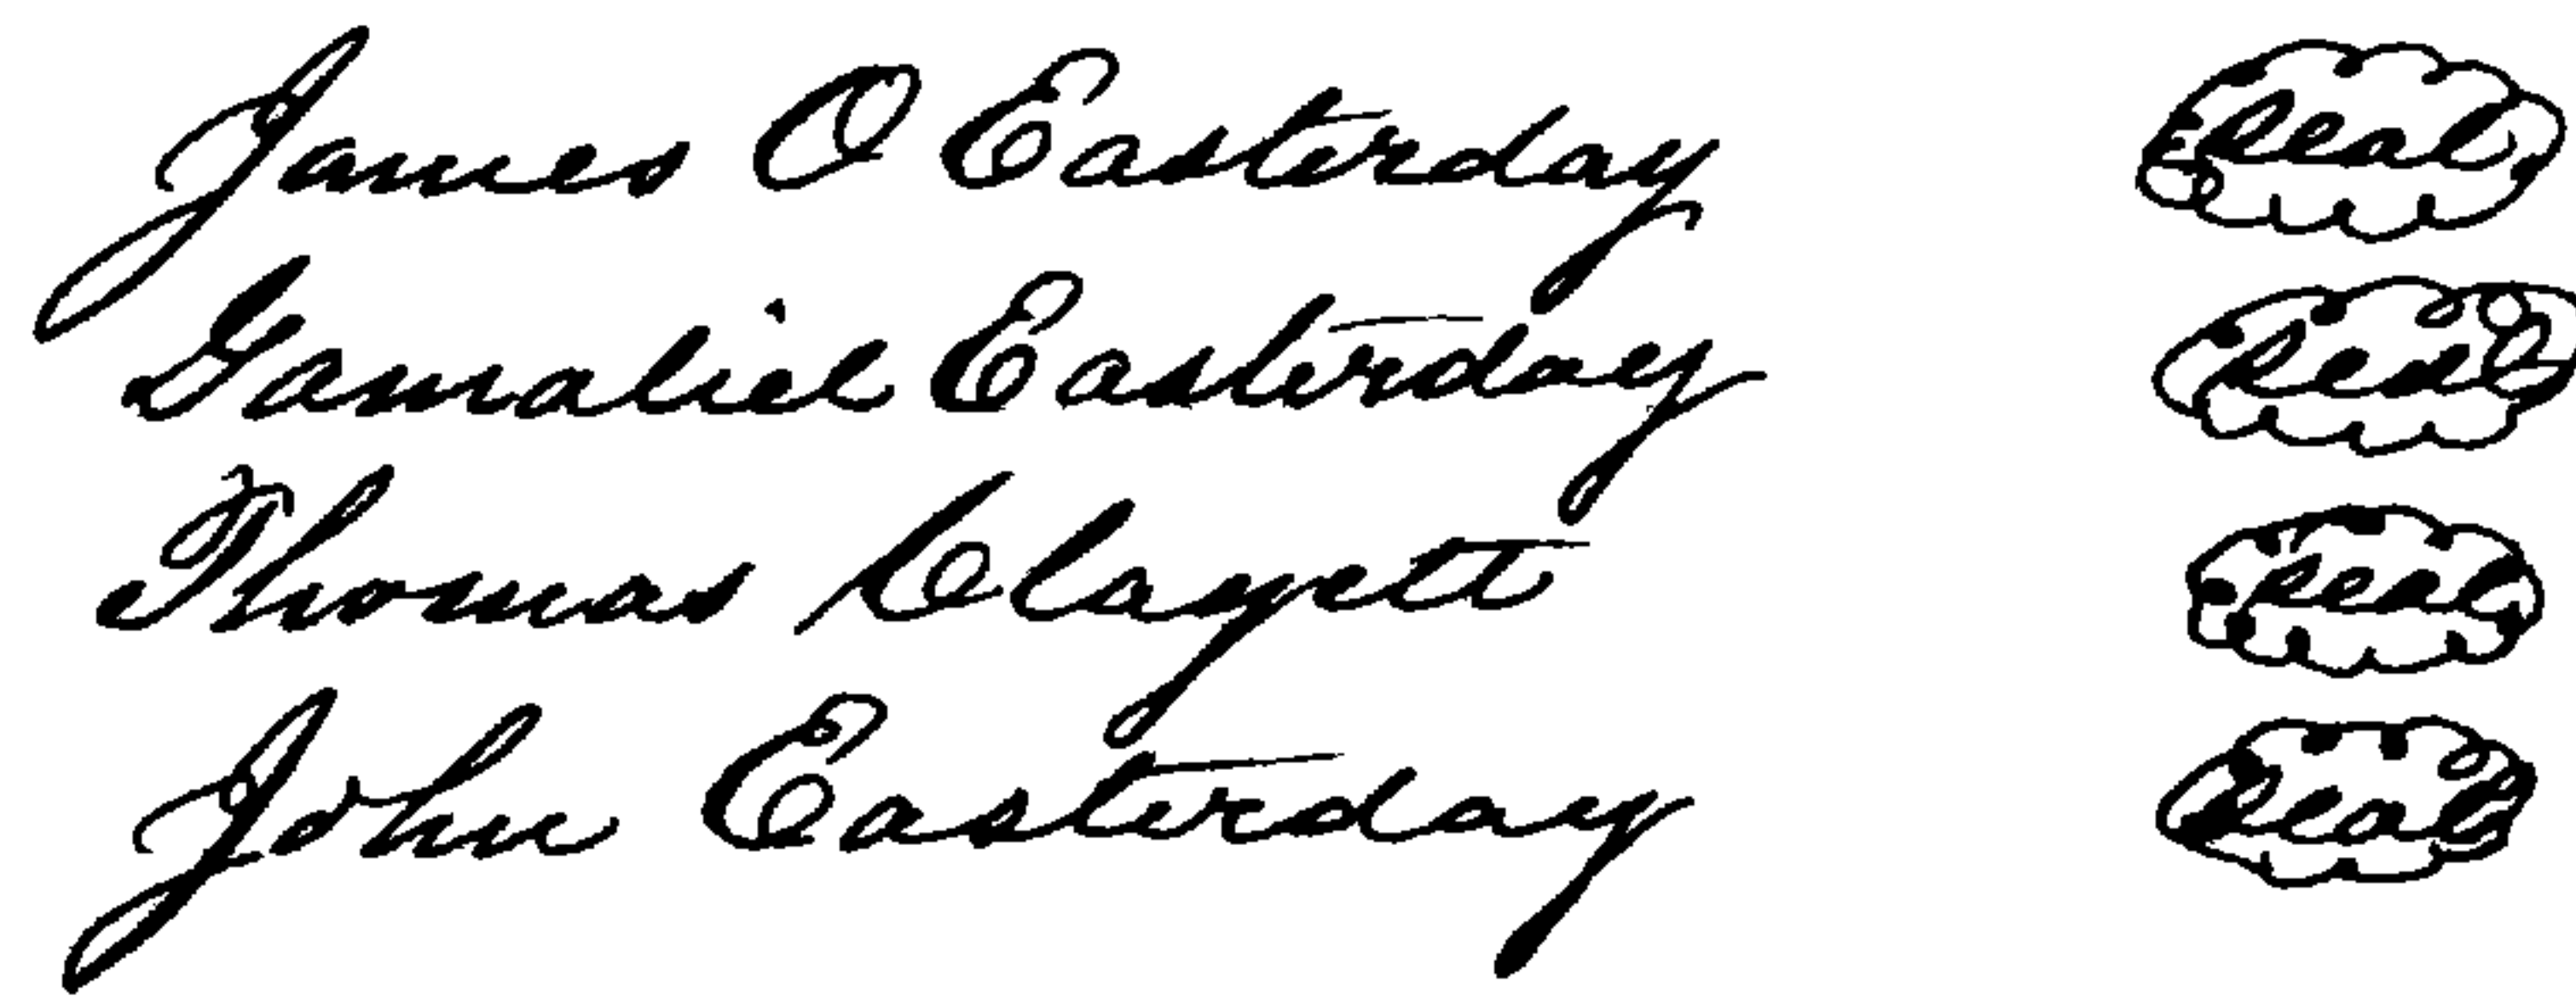 James O Easterday seal
Gamaliel Easterday seal
Thomas Clagett seal
John Easterday seal